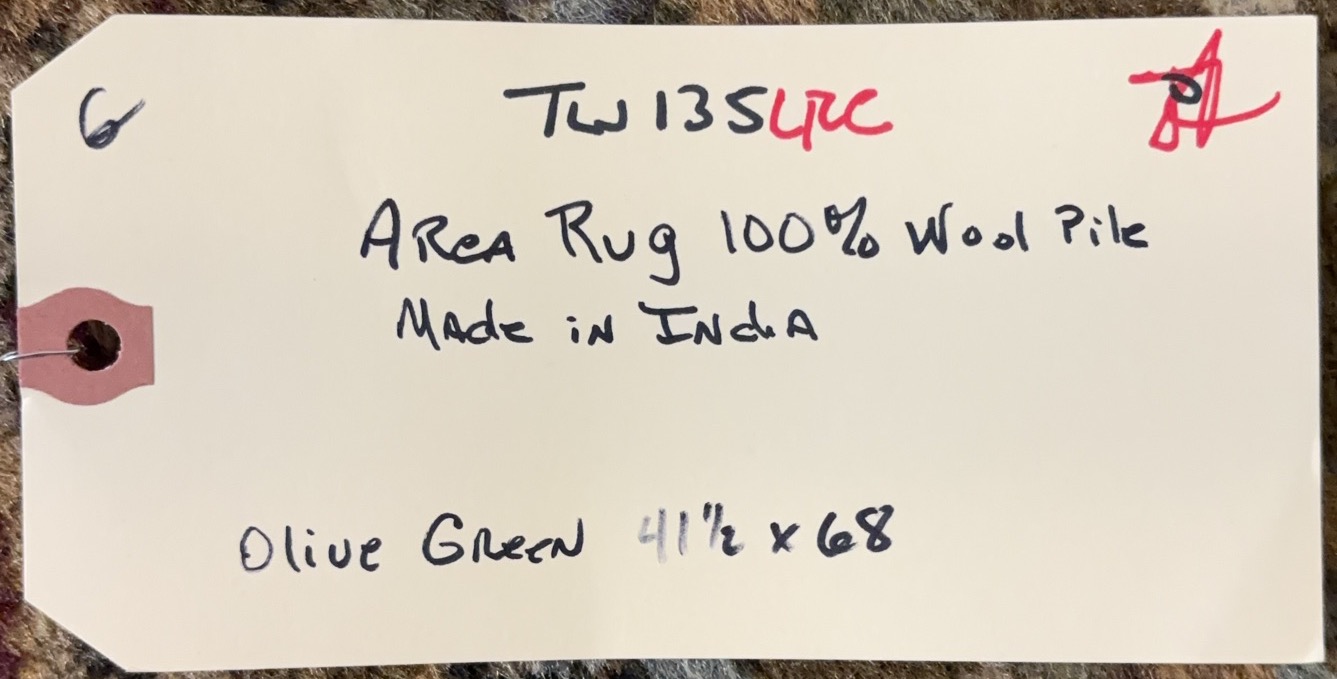 6
TW135LRC
Area Rug 100% Wool Pile
Made in India
Olive Green 41½ x 68